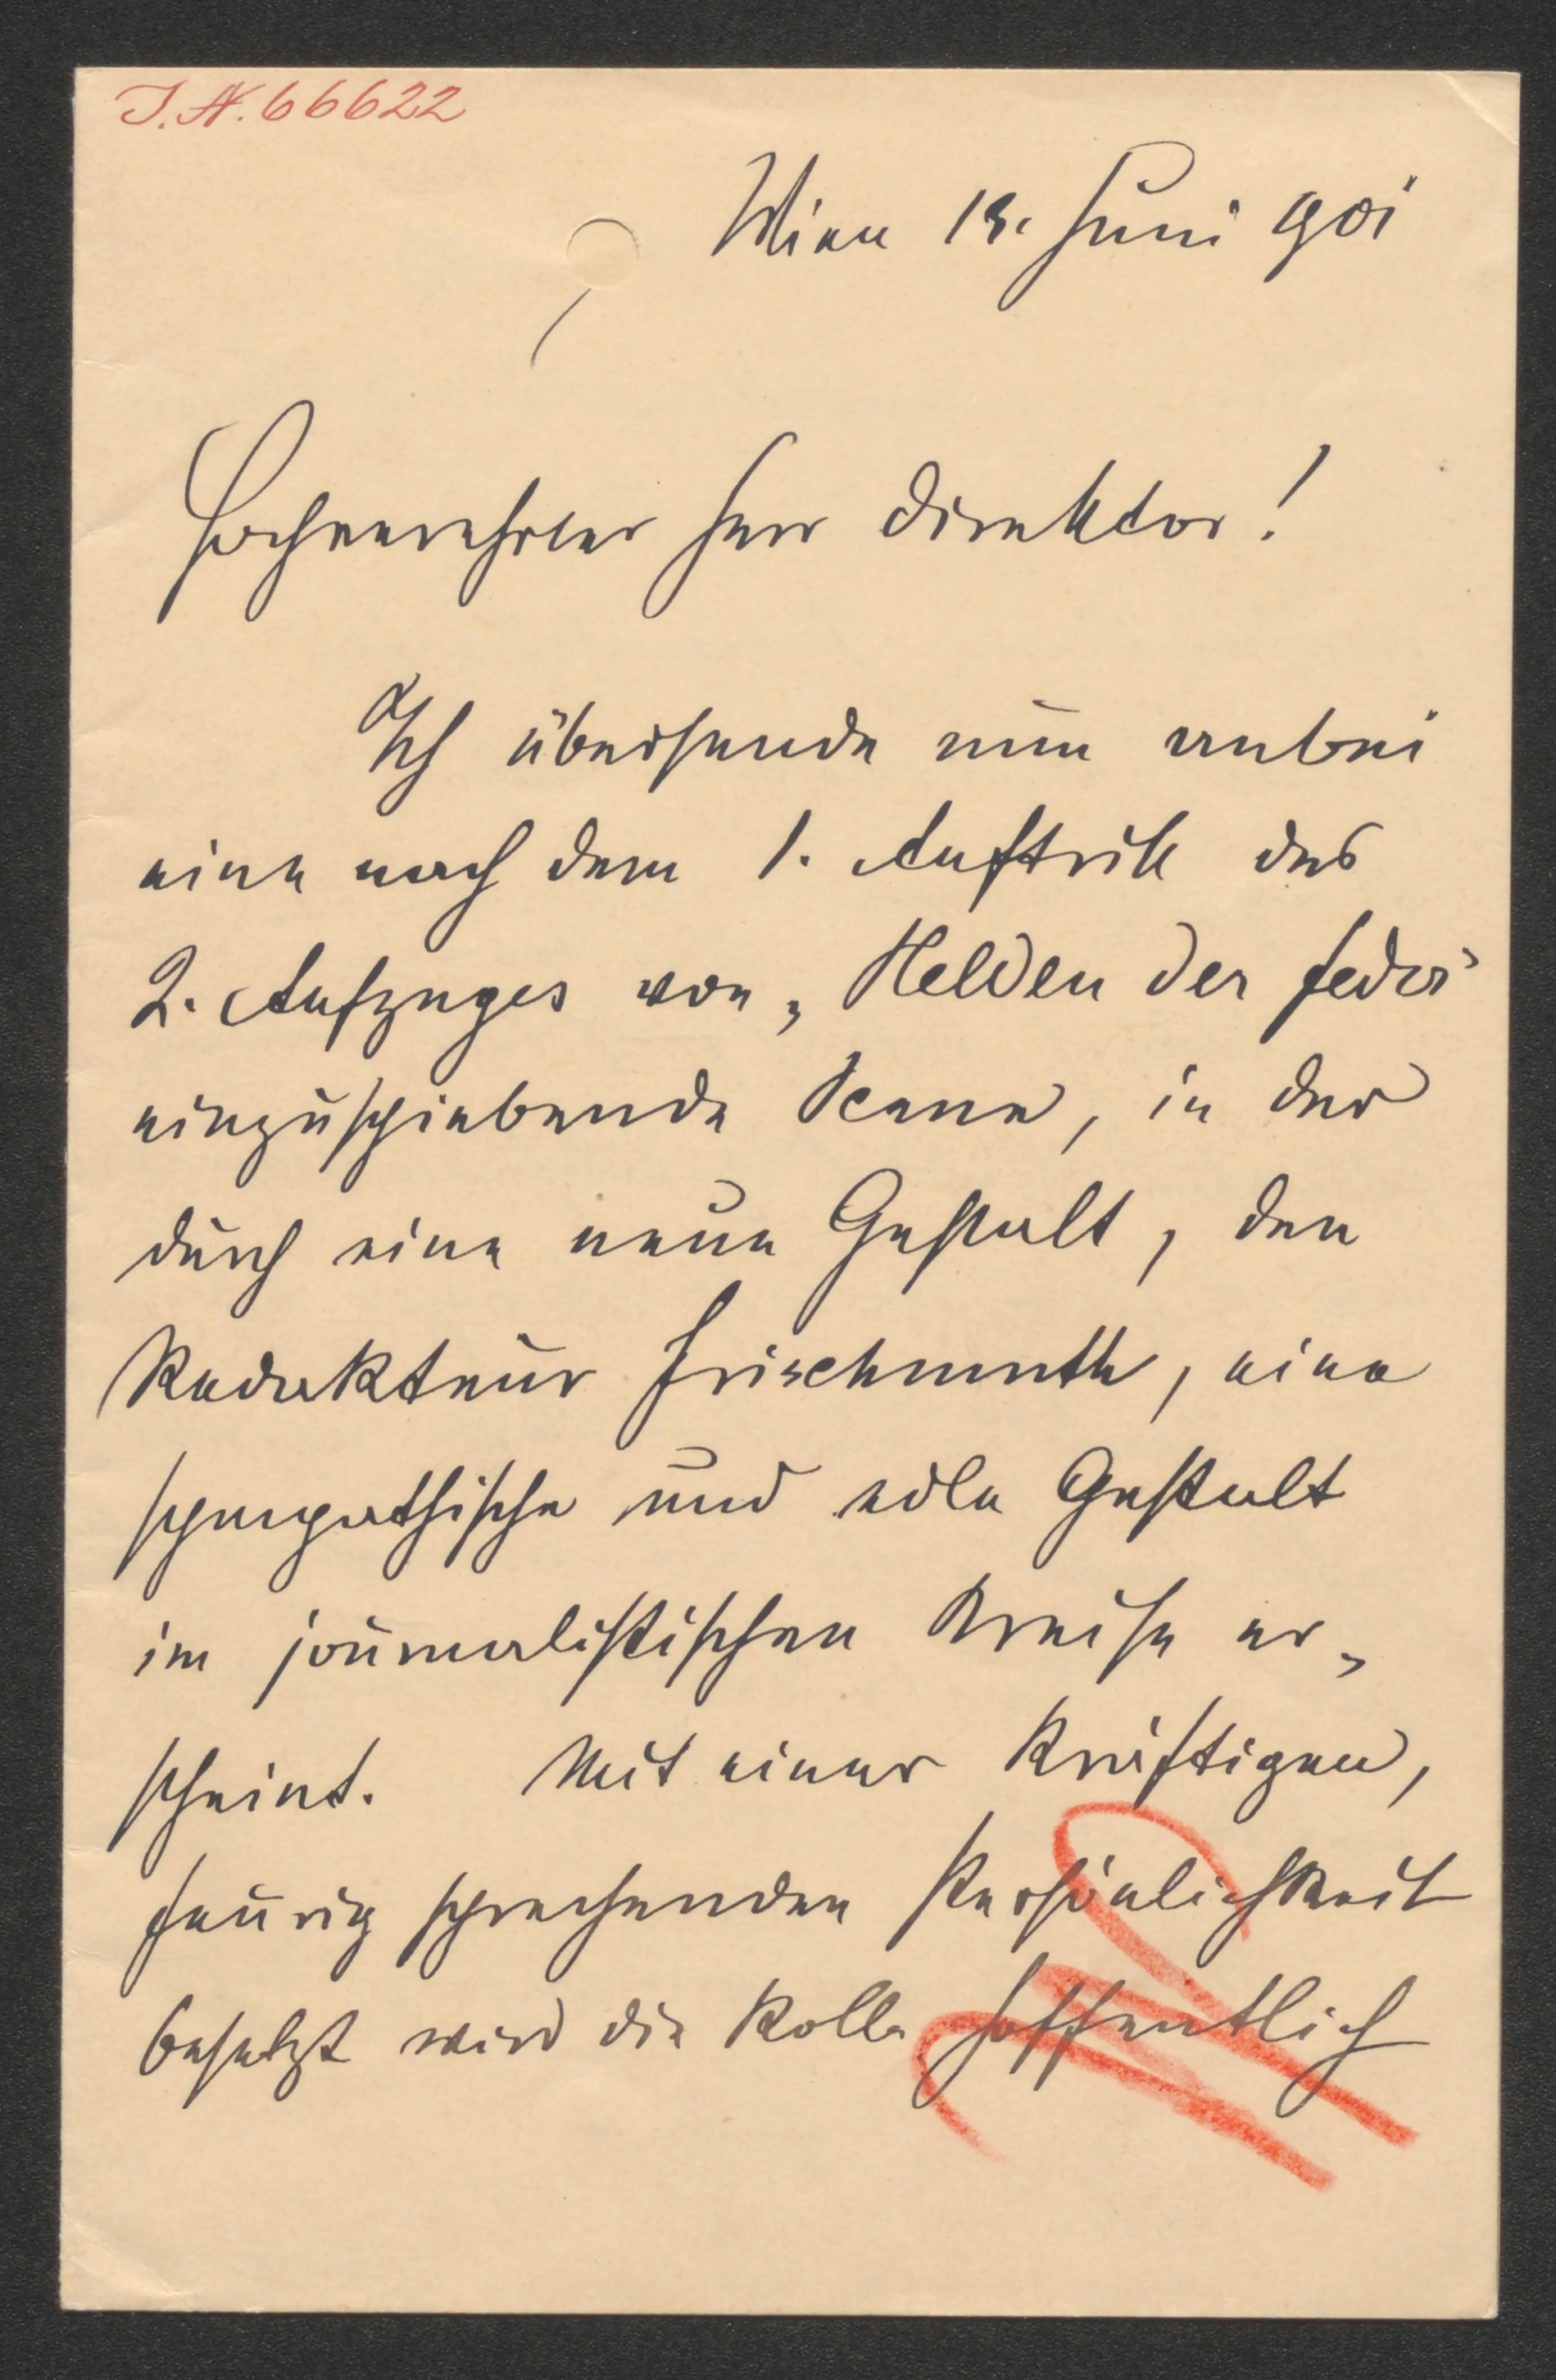 J. N. 66622
Wien 13. Juni 901
Hochverehrter Herr Direktor!
Ich übersende nun anbei
eine nach dem 1. Auftritt des
2. Aufzuges von „Helden der Feder"
einzuschiebende Scene, in der
durch eine neue Gestalt, den
Redakteur Frischmuth, eine
sympathische und edle Gestalt
im journalistischen Kreise er„
scheint. Mit einer kräftigen,
feurig sprechenden Persönlichkeit
besetzt wird die Rolle hoffentlich